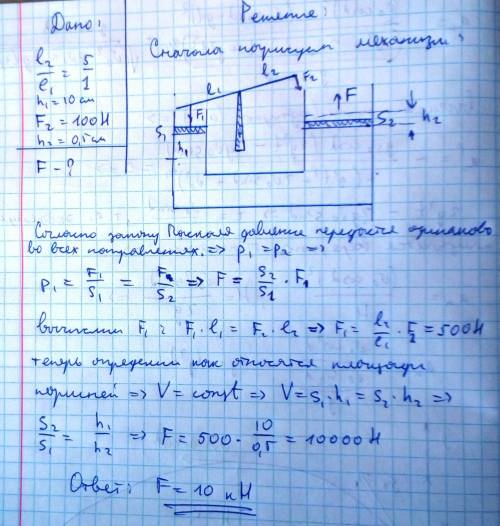 Дано:
l₂/l₁ = 5/1
h₁ = 10 см
F₂ = 100Н
h₂ = 0,5 см
F - ?
Решение:
Сначала нарисуем механизм:
l₁ l₂ F₂
F₁ F
S₁ S₂ h₂
h₁
Согласно закону Паскаля давление передаётся одинаково
во всех направлениях. => p₁ = p₂ =>
p₁ = F₁/S₁ = F/S₂ => F = S₂/S₁ · F₁
вычислим F₁: F₁·l₁ = F₂·l₂ => F₁ = l₂/l₁ · F₂ = 500Н
теперь определим как относятся площади
поршней => V = const => V = S₁·h₁ = S₂·h₂ =>
S₂/S₁ = h₁/h₂ => F = 500 · 10/0,5 = 10000Н
Ответ: F = 10 кН